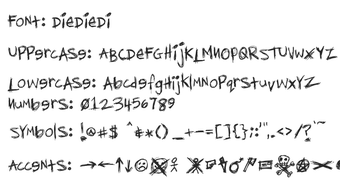 FONT: DiEDiEDi
UPPERCASE: ABCDEFGHIJKLMNOPQRSTUVWXYZ
LOWERCASE: AbcdefghijklmnoPqrstuvwxyz
NUMBERS: 0123456789
SYMBOLS: !@#$ ^&*()_+-=[]{};:'",.<>/?`~
ACCENTS: →←↑↓☹